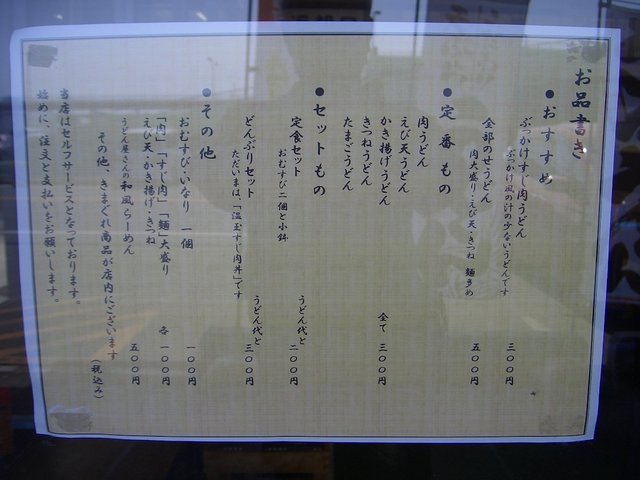 お品書き
●おすすめ
ぶっかけすじ肉うどん 三〇〇円
ぶっかけ風の汁の少ないうどんです
全部のせうどん 五〇〇円
肉大盛り・えび天・きつね 麺多め
●定番もの
肉うどん
えび天うどん
かき揚げうどん 全て 三〇〇円
きつねうどん
たまごうどん
●セットもの
定食セット うどん代と 二〇〇円
おむすび二個と小鉢
どんぶりセット うどん代と 三〇〇円
ただいまは、「温玉すじ肉丼」です
●その他
おむすび・いなり 一個 一〇〇円
「肉」「すじ肉」「麺」大盛り 各 一〇〇円
えび天・かき揚げ・きつね
うどん屋さんの和風らーめん 五〇〇円
その他、きまぐれ商品が店内にございます
(税込み)
当店はセルフサービスとなっております。
始めに、注文と支払いをお願いします。